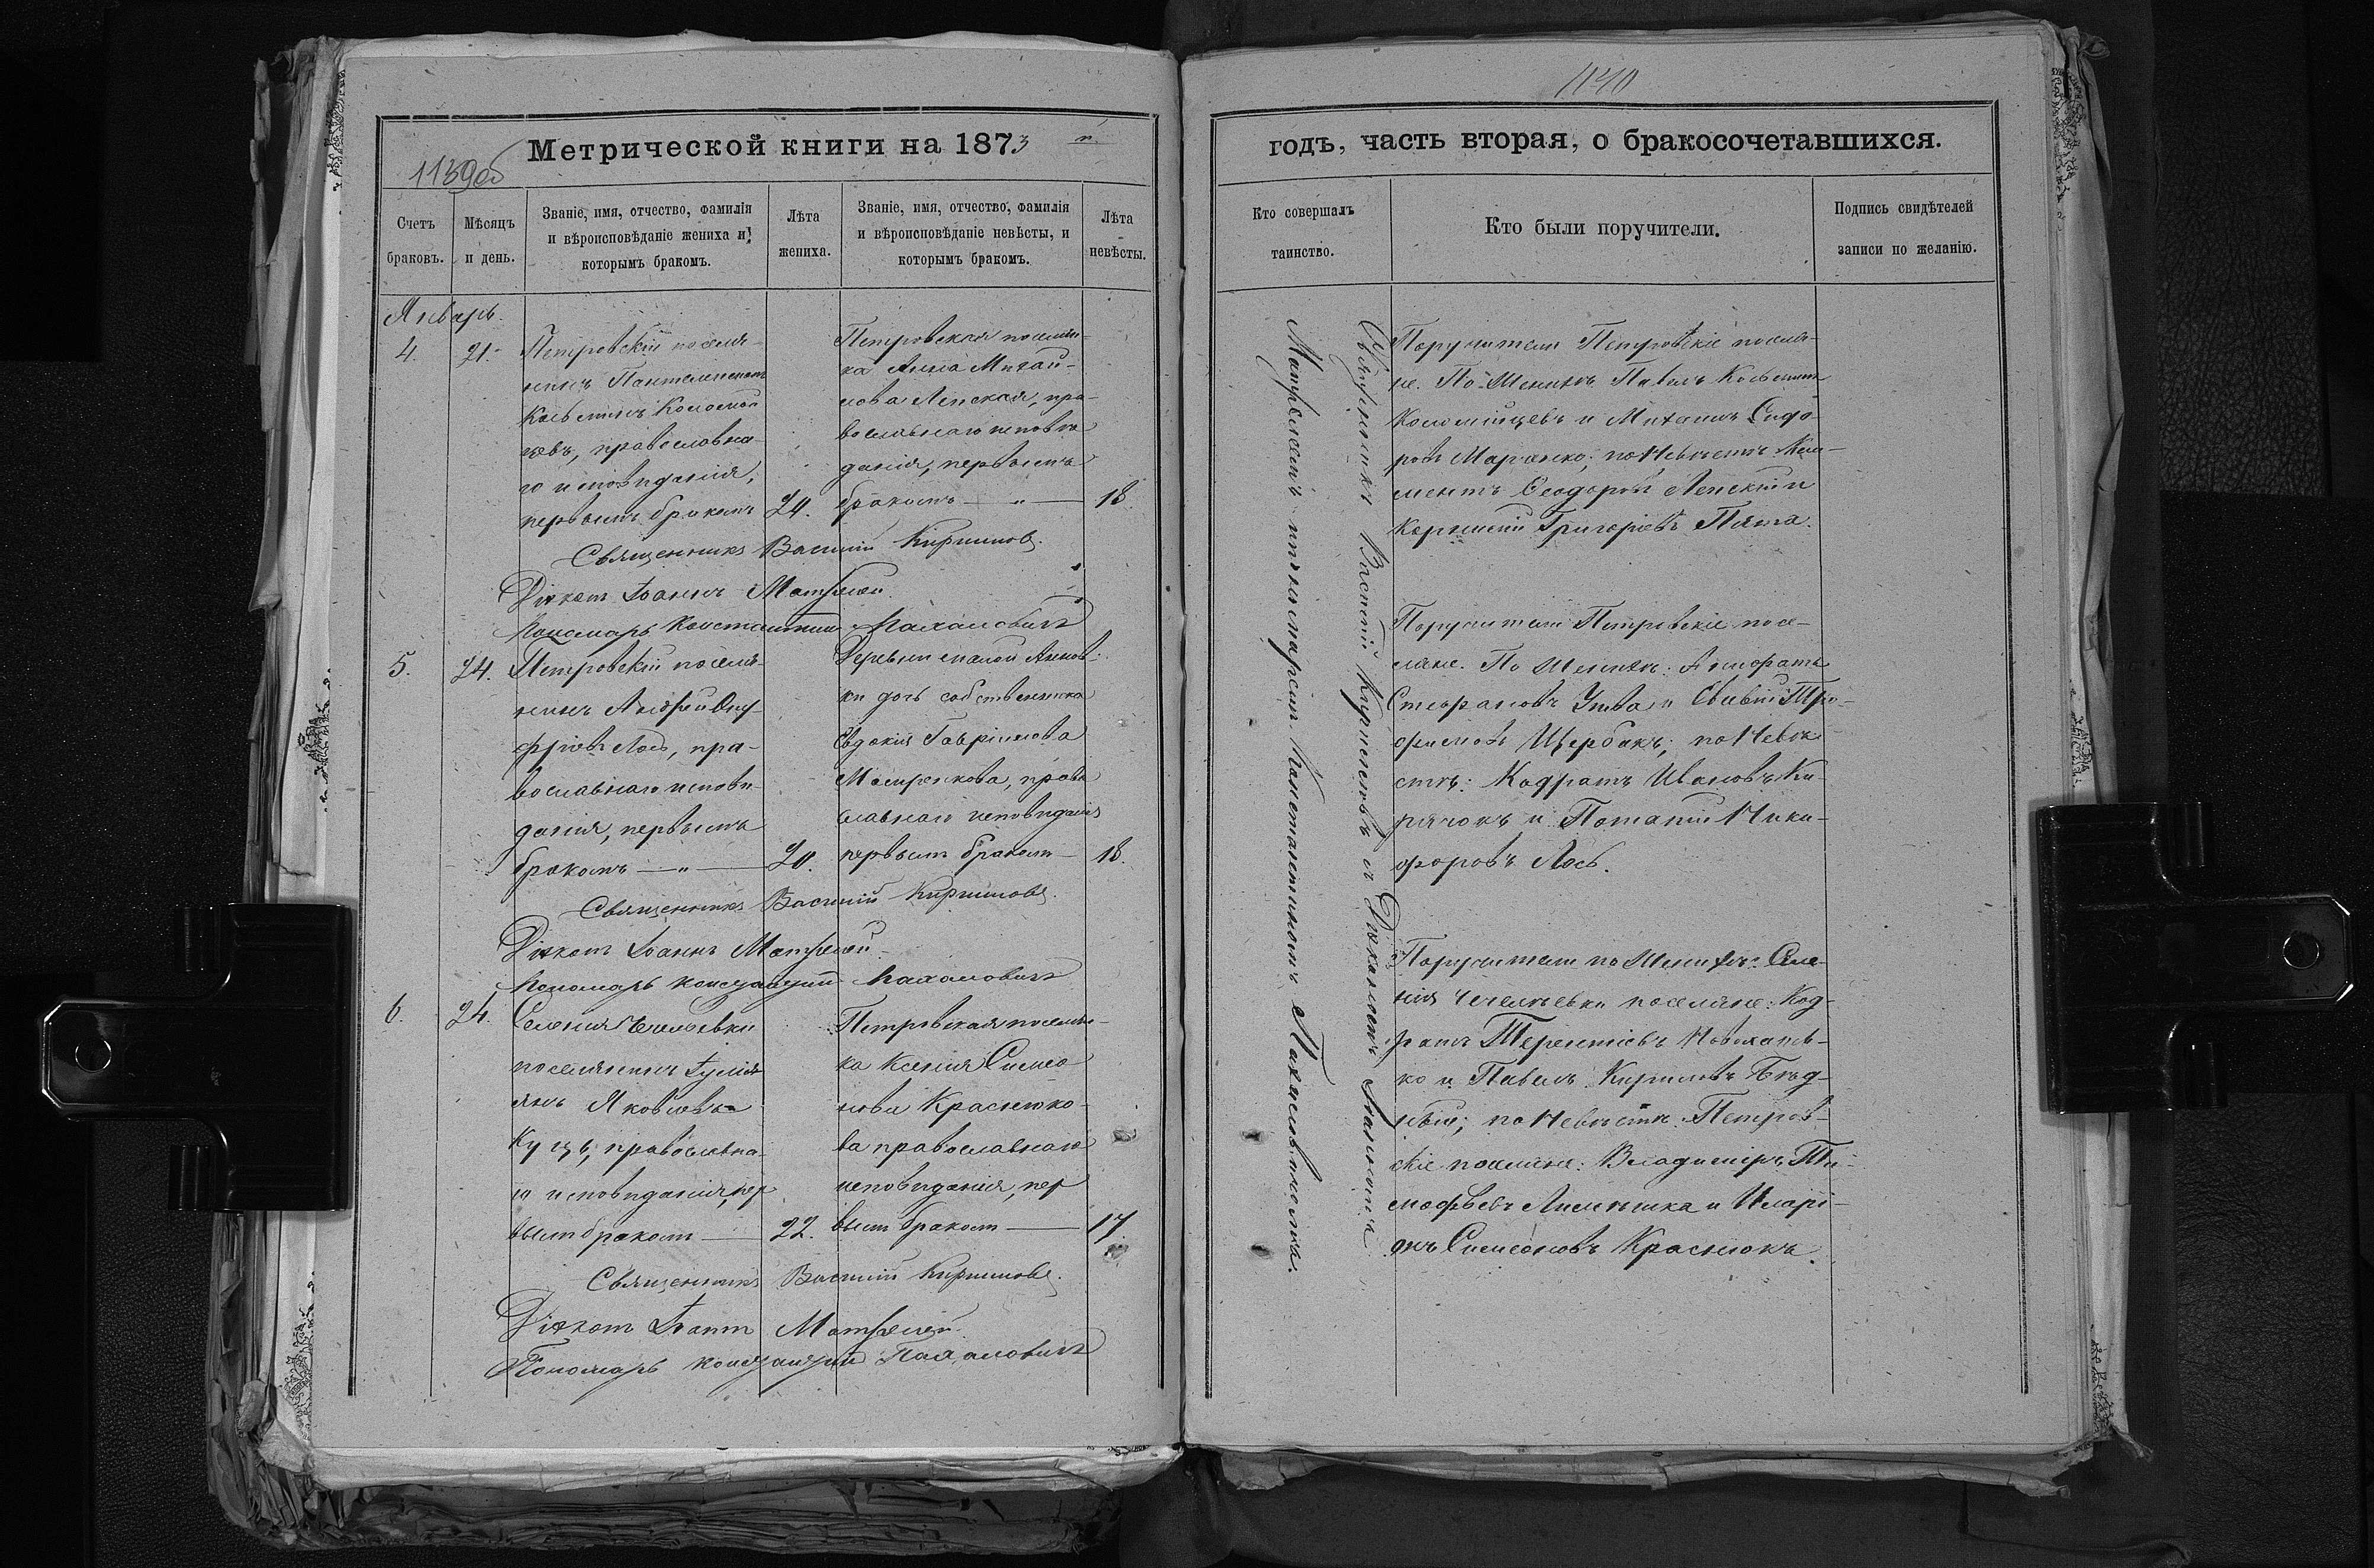 1139об
Метрической книги на 1873 г.
Счетъ браковъ.
Мѣсяцъ и день.
Званіе, имя, отчество, фамилія и вѣроисповѣданіе жениха и которымъ бракомъ.
Лѣта жениха.
Званіе, имя, отчество, фамилія и вѣроисповѣданіе невѣсты, и которымъ бракомъ.
Лѣта невѣсты.
Январь.
4.
21.
Петровскій поселя-
нинъ Пантелеимонъ
Козьминъ Коломой
цевъ, православна-
го исповѣданія,
первымъ бракомъ
24.
Петровская поселян-
ка Анна Михай-
лова Ленская, пра-
вославнаго исповѣ
данія, первымъ
бракомъ — „ —
18.
Священникъ Василій Кирилловъ.
Діаконъ Іоаннъ
Пономарь Константинъ
5.
24.
Петровскій поселя-
нинъ Андрей Ону
фріевъ Лось, пра-
вославнаго исповѣ
данія, первымъ
бракомъ — „ —
20.
Деревни малой Аннов-
ки дочь собственника
Евдокія Гавріилова
православнаго исповѣданія
первымъ бракомъ —
18.
Священникъ Василій Кирилловъ.
Діаконъ Іоаннъ
Пономарь Константинъ
6.
24.
Селенія
поселянинъ Іулі
анъ Яковлевъ
Куцъ, православна-
го исповѣданія, пер
вымъ бракомъ —
22.
Петровская поселян-
ка Ксенія Симео
нова Краснюко-
ва православнаго
исповѣданія, пер
вымъ бракомъ —
17.
Священникъ Василій Кирилловъ.
Діаконъ Іоаннъ
Пономарь Константинъ
1140
годъ, часть вторая, о бракосочетавшихся.
Кто совершалъ таинство.
Кто были поручители.
Подпись свидѣтелей записи по желанію.
Священникъ Василій Кирилловъ съ Діакономъ Іоанномъ
и пономаремъ Константиномъ
Поручители Петровскіе поселя-
не. По Женихѣ: Павелъ Козьминъ
Коломійцевъ и Михаилъ Сидо
ровъ Марченко; по Невѣстѣ: Кли-
ментъ Ѳеодоровъ Ленскій и
Корнилій Григоріевъ Пята.
Поручители Петровскіе посе-
ляне. По Женихѣ:
Стефановъ и Тро-
фимовъ Щербакъ; по Невѣ
стѣ: Кодратъ Ивановъ Ки-
ричокъ и Потапій Ники-
форовъ Лось.
Поручители по Женихѣ: Селе-
нія поселяне: Код-
ратъ Терентіевъ
ко и Павелъ Кириловъ Бѣд-
ный; по Невѣстѣ: Петров-
скіе поселяне: Владиміръ Ти-
мофѣевъ и Иларі-
онъ Симеоновъ Краснюкъ.